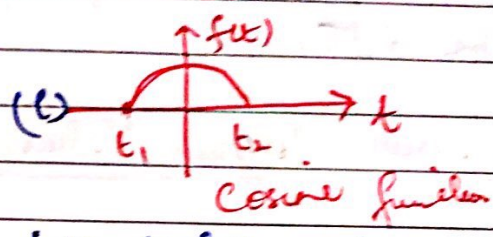 f(t)
(i) t
t₁ t₂
Cosine function